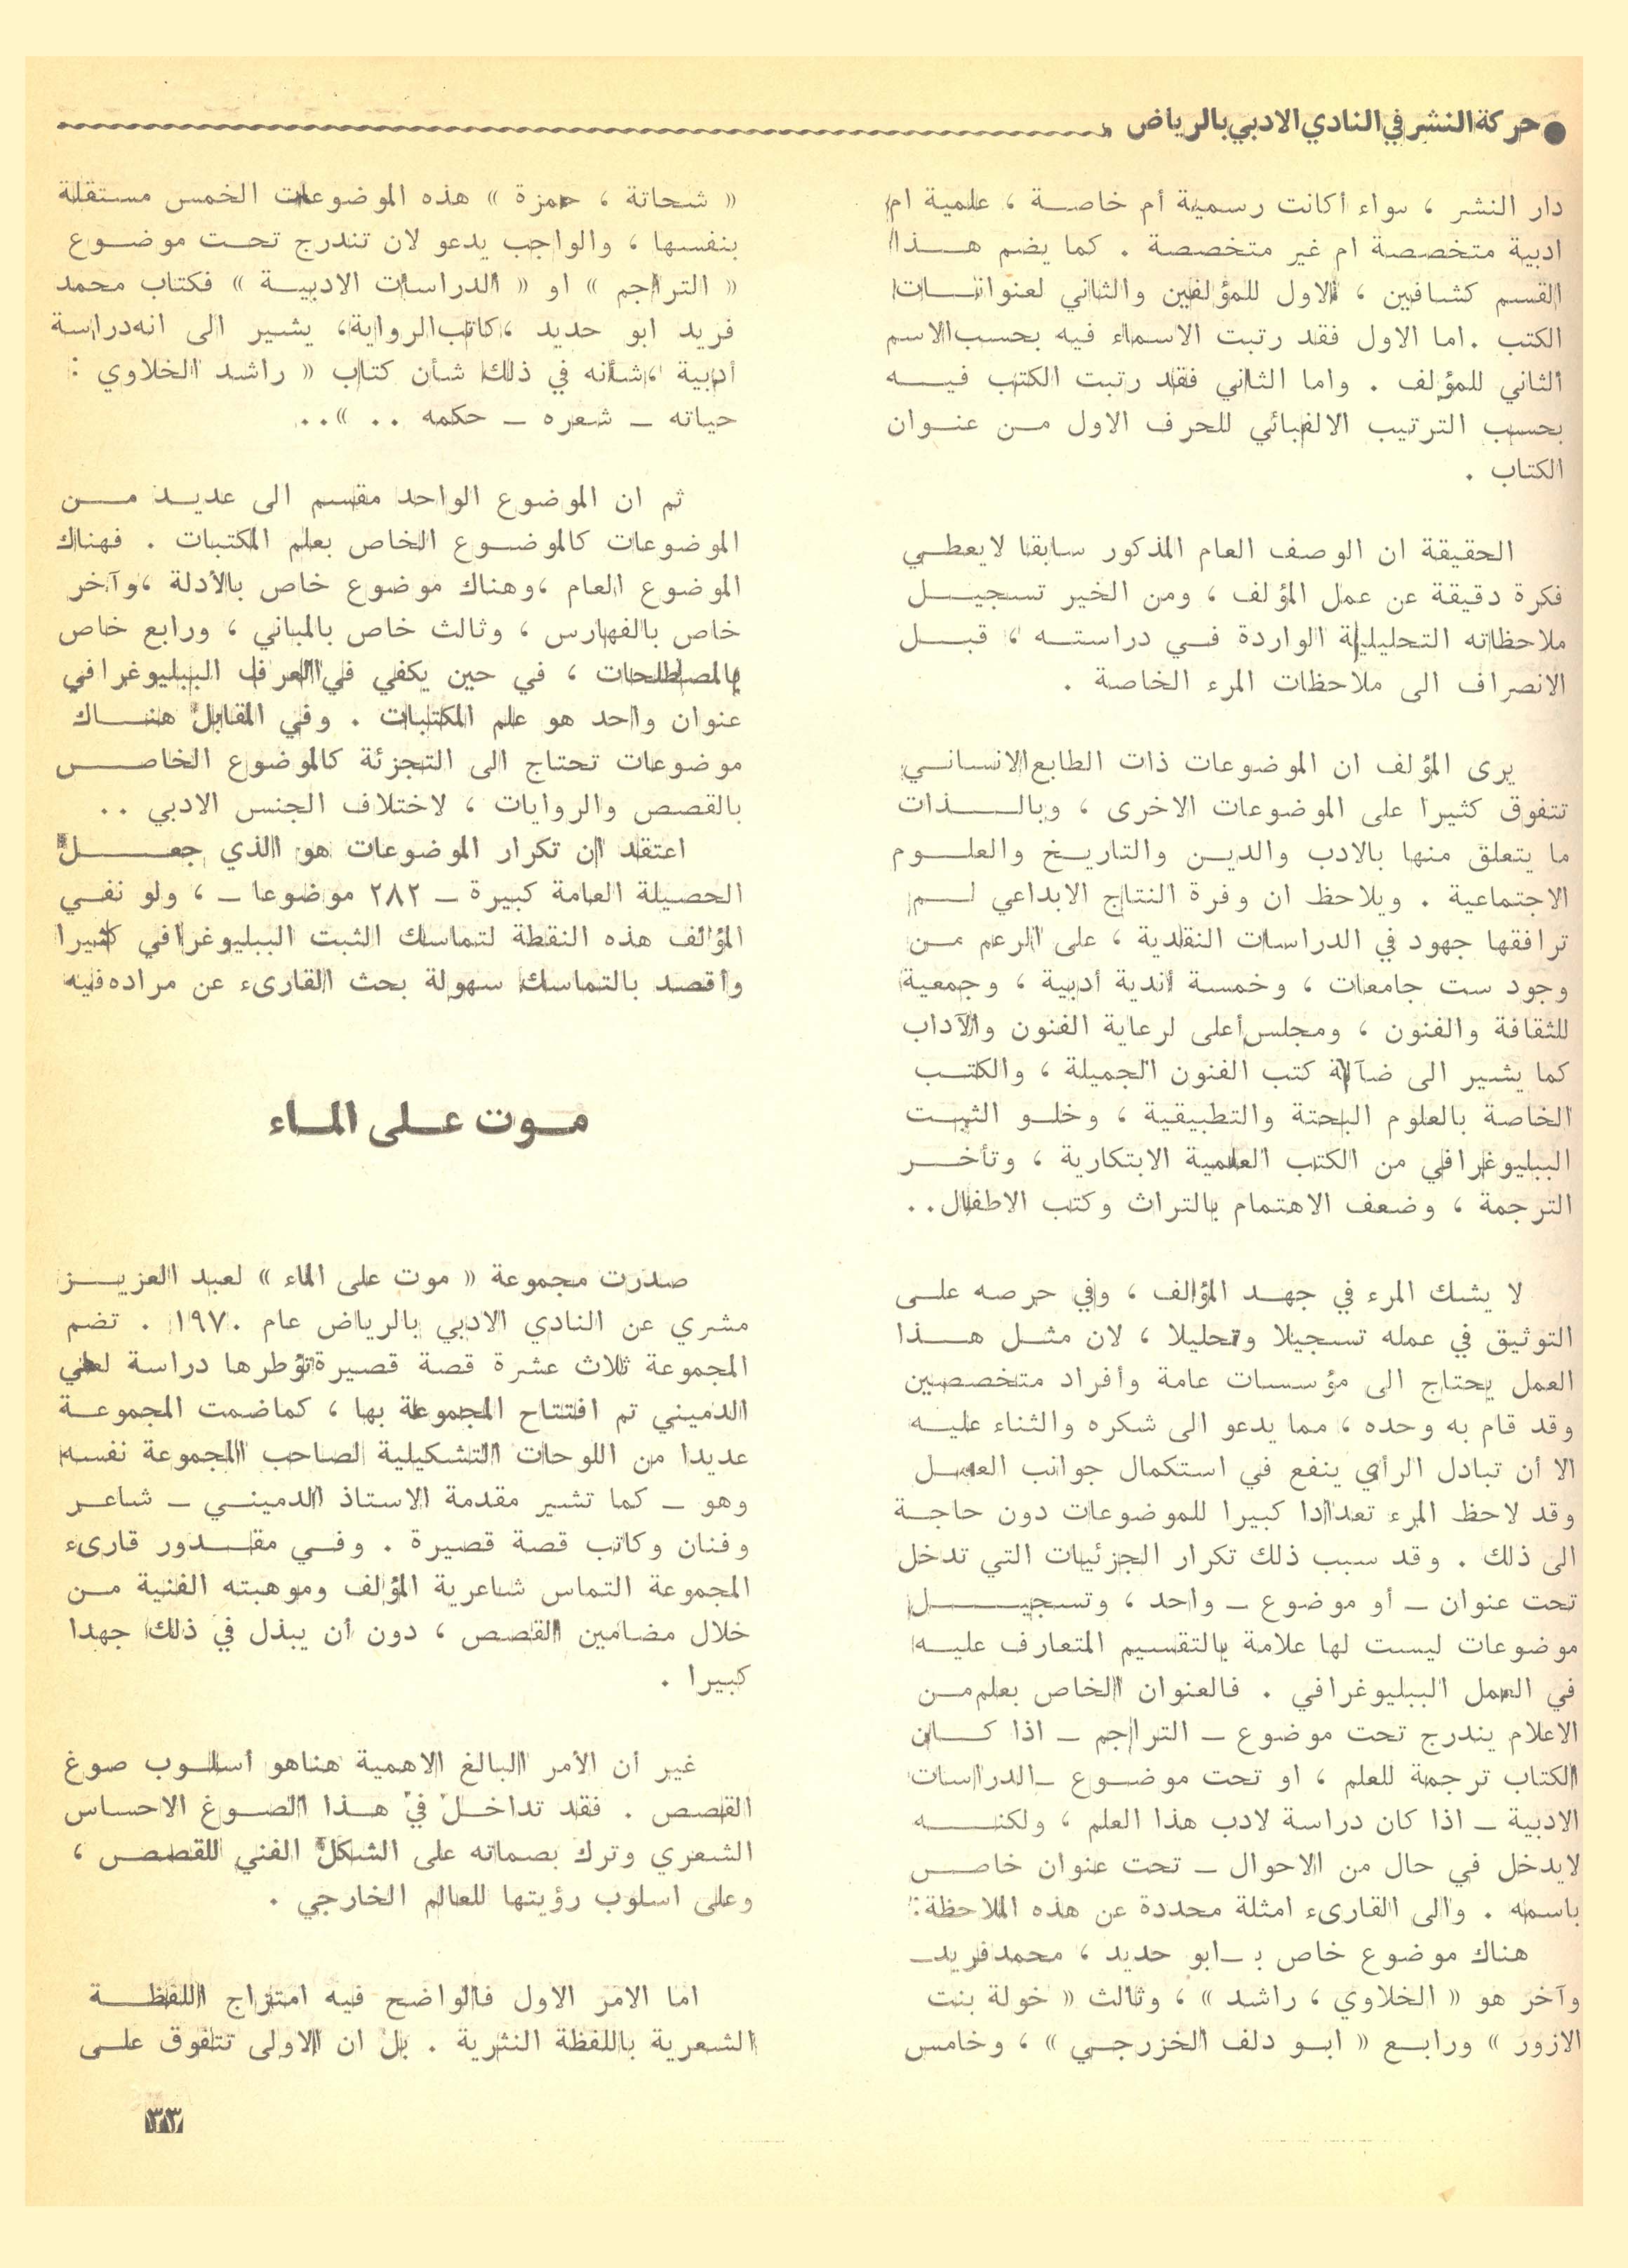 ● حركة النشر في النادي الادبي بالرياض
دار النشر ، سواء أكانت رسمية أم خاصة ، علمية ام
ادبية متخصصة ام غير متخصصة . كما يضم هذا
القسم كشافين ، الاول للمؤلفين والثاني لعنوانات
الكتب . اما الاول فقد رتبت الاسماء فيه بحسب الاسم
الثاني للمؤلف . واما الثاني فقد رتبت الكتب فيه
بحسب الترتيب الالفبائي للحرف الاول من عنوان
الكتاب .
الحقيقة ان الوصف العام المذكور سابقا لايعطي
فكرة دقيقة عن عمل المؤلف ، ومن الخير تسجيل
ملاحظاته التحليلية الواردة في دراسته ، قبل
الانصراف الى ملاحظات المرء الخاصة .
يرى المؤلف ان الموضوعات ذات الطابع الانساني
تتفوق كثيرا على الموضوعات الاخرى ، وبالذات
ما يتعلق منها بالادب والدين والتاريخ والعلوم
الاجتماعية . ويلاحظ ان وفرة النتاج الابداعي لم
ترافقها جهود في الدراسات النقدية ، على الرغم من
وجود ست جامعات ، وخمسة أندية أدبية ، وجمعية
للثقافة والفنون ، ومجلس أعلى لرعاية الفنون والآداب
كما يشير الى ضآلة كتب الفنون الجميلة ، والكتب
الخاصة بالعلوم البحتة والتطبيقية ، وخلو الثبت
الببليوغرافي من الكتب العلمية الابتكارية ، وتأخر
الترجمة ، وضعف الاهتمام بالتراث وكتب الاطفال..
لا يشك المرء في جهد المؤلف ، وفي حرصه على
التوثيق في عمله تسجيلا وتحليلا ، لان مثل هذا
العمل يحتاج الى مؤسسات عامة وأفراد متخصصين
وقد قام به وحده ، مما يدعو الى شكره والثناء عليه
الا أن تبادل الرأي ينفع في استكمال جوانب العمل
وقد لاحظ المرء تعدادا كبيرا للموضوعات دون حاجة
الى ذلك . وقد سبب ذلك تكرار الجزئيات التي تدخل
تحت عنوان – أو موضوع – واحد ، وتسجيل
موضوعات ليست لها علامة بالتقسيم المتعارف عليه
في العمل الببليوغرافي . فالعنوان الخاص بعلم من
الاعلام يندرج تحت موضوع – التراجم – اذا كان
الكتاب ترجمة للعلم ، او تحت موضوع –الدراسات
الادبية – اذا كان دراسة لادب هذا العلم ، ولكنه
لايدخل في حال من الاحوال – تحت عنوان خاص
باسمه . والى القارىء امثلة محددة عن هذه الملاحظة:
هناك موضوع خاص بـ –ابو حديد ، محمد فريد–
وآخر هو « الخلاوي ، راشد » ، وثالث « خولة بنت
الازور » ورابع « ابو دلف الخزرجي » ، وخامس
« شحاتة ، حمزة » هذه الموضوعات الخمس مستقلة
بنفسها ، والواجب يدعو لان تندرج تحت موضوع
« التراجم » او « الدراسات الادبية » فكتاب محمد
فريد ابو حديد ،كاتب الرواية، يشير الى انه دراسة
أدبية ،شأنه في ذلك شأن كتاب « راشد الخلاوي :
حياته – شعره – حكمه .. »..
ثم ان الموضوع الواحد مقسم الى عديد من
الموضوعات كالموضوع الخاص بعلم المكتبات . فهناك
الموضوع العام ،وهناك موضوع خاص بالأدلة ،وآخر
خاص بالفهارس ، وثالث خاص بالمباني ، ورابع خاص
بالمصطلحات ، في حين يكفي في العرف الببليوغرافي
عنوان واحد هو علم المكتبات . وفي المقابل هناك
موضوعات تحتاج الى التجزئة كالموضوع الخاص
بالقصص والروايات ، لاختلاف الجنس الادبي ..
اعتقد ان تكرار الموضوعات هو الذي جعل
الحصيلة العامة كبيرة – ٢٨٢ موضوعا – ، ولو نفي
المؤلف هذه النقطة لتماسك الثبت الببليوغرافي كثيرا
وأقصد بالتماسك سهولة بحث القارىء عن مراده فيه
موت على الماء
صدرت مجموعة « موت على الماء » لعبد العزيز
مشري عن النادي الادبي بالرياض عام ١٩٧٠ . تضم
المجموعة ثلاث عشرة قصة قصيرة تؤطرها دراسة لعلي
الدميني تم افتتاح المجموعة بها ، كما ضمت المجموعة
عديدا من اللوحات التشكيلية لصاحب المجموعة نفسه
وهو – كما تشير مقدمة الاستاذ الدميني – شاعر
وفنان وكاتب قصة قصيرة . وفي مقدور قارىء
المجموعة التماس شاعرية المؤلف وموهبته الفنية من
خلال مضامين القصص ، دون أن يبذل في ذلك جهدا
كبيرا .
غير أن الأمر البالغ الاهمية هناهو أسلوب صوغ
القصص . فقد تداخل في هذا الصوغ الاحساس
الشعري وترك بصماته على الشكل الفني للقصص ،
وعلى اسلوب رؤيتها للعالم الخارجي .
اما الامر الاول فالواضح فيه امتزاج اللفظة
الشعرية باللفظة النثرية . بل ان الاولى تتفوق على
٣٣